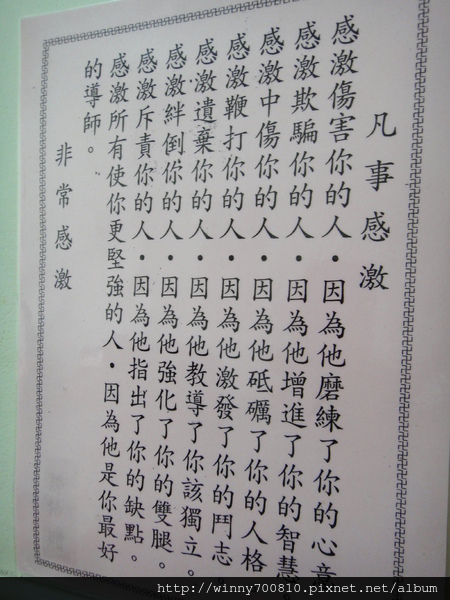 凡事感激
感激傷害你的人・因為他磨練了你的心
感激欺騙你的人・因為他增進了你的智慧
感激中傷你的人・因為他砥礪了你的人格
感激鞭打你的人・因為他激發了你的鬥志
感激遺棄你的人・因為他教導了你該獨立。
感激絆倒你的人・因為他強化了你的雙腿。
感激斥責你的人・因為他指出了你的缺點。
感激所有使你更堅強的人・因為他是你最好
的導師。
非常感激
http://winny700810.pixnet.net/album